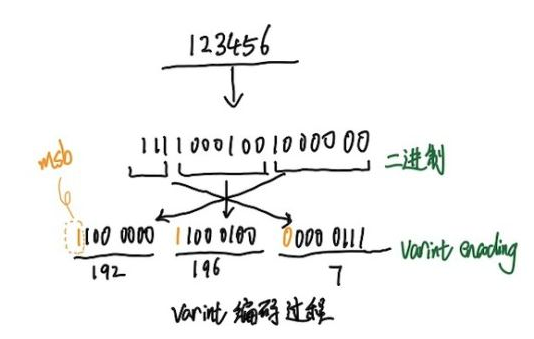 123456
msb
111 1000100 1000000 二进制
1100 0000 1100 0100 0000 0111 varint encoding
192 196 7
varint 编码过程